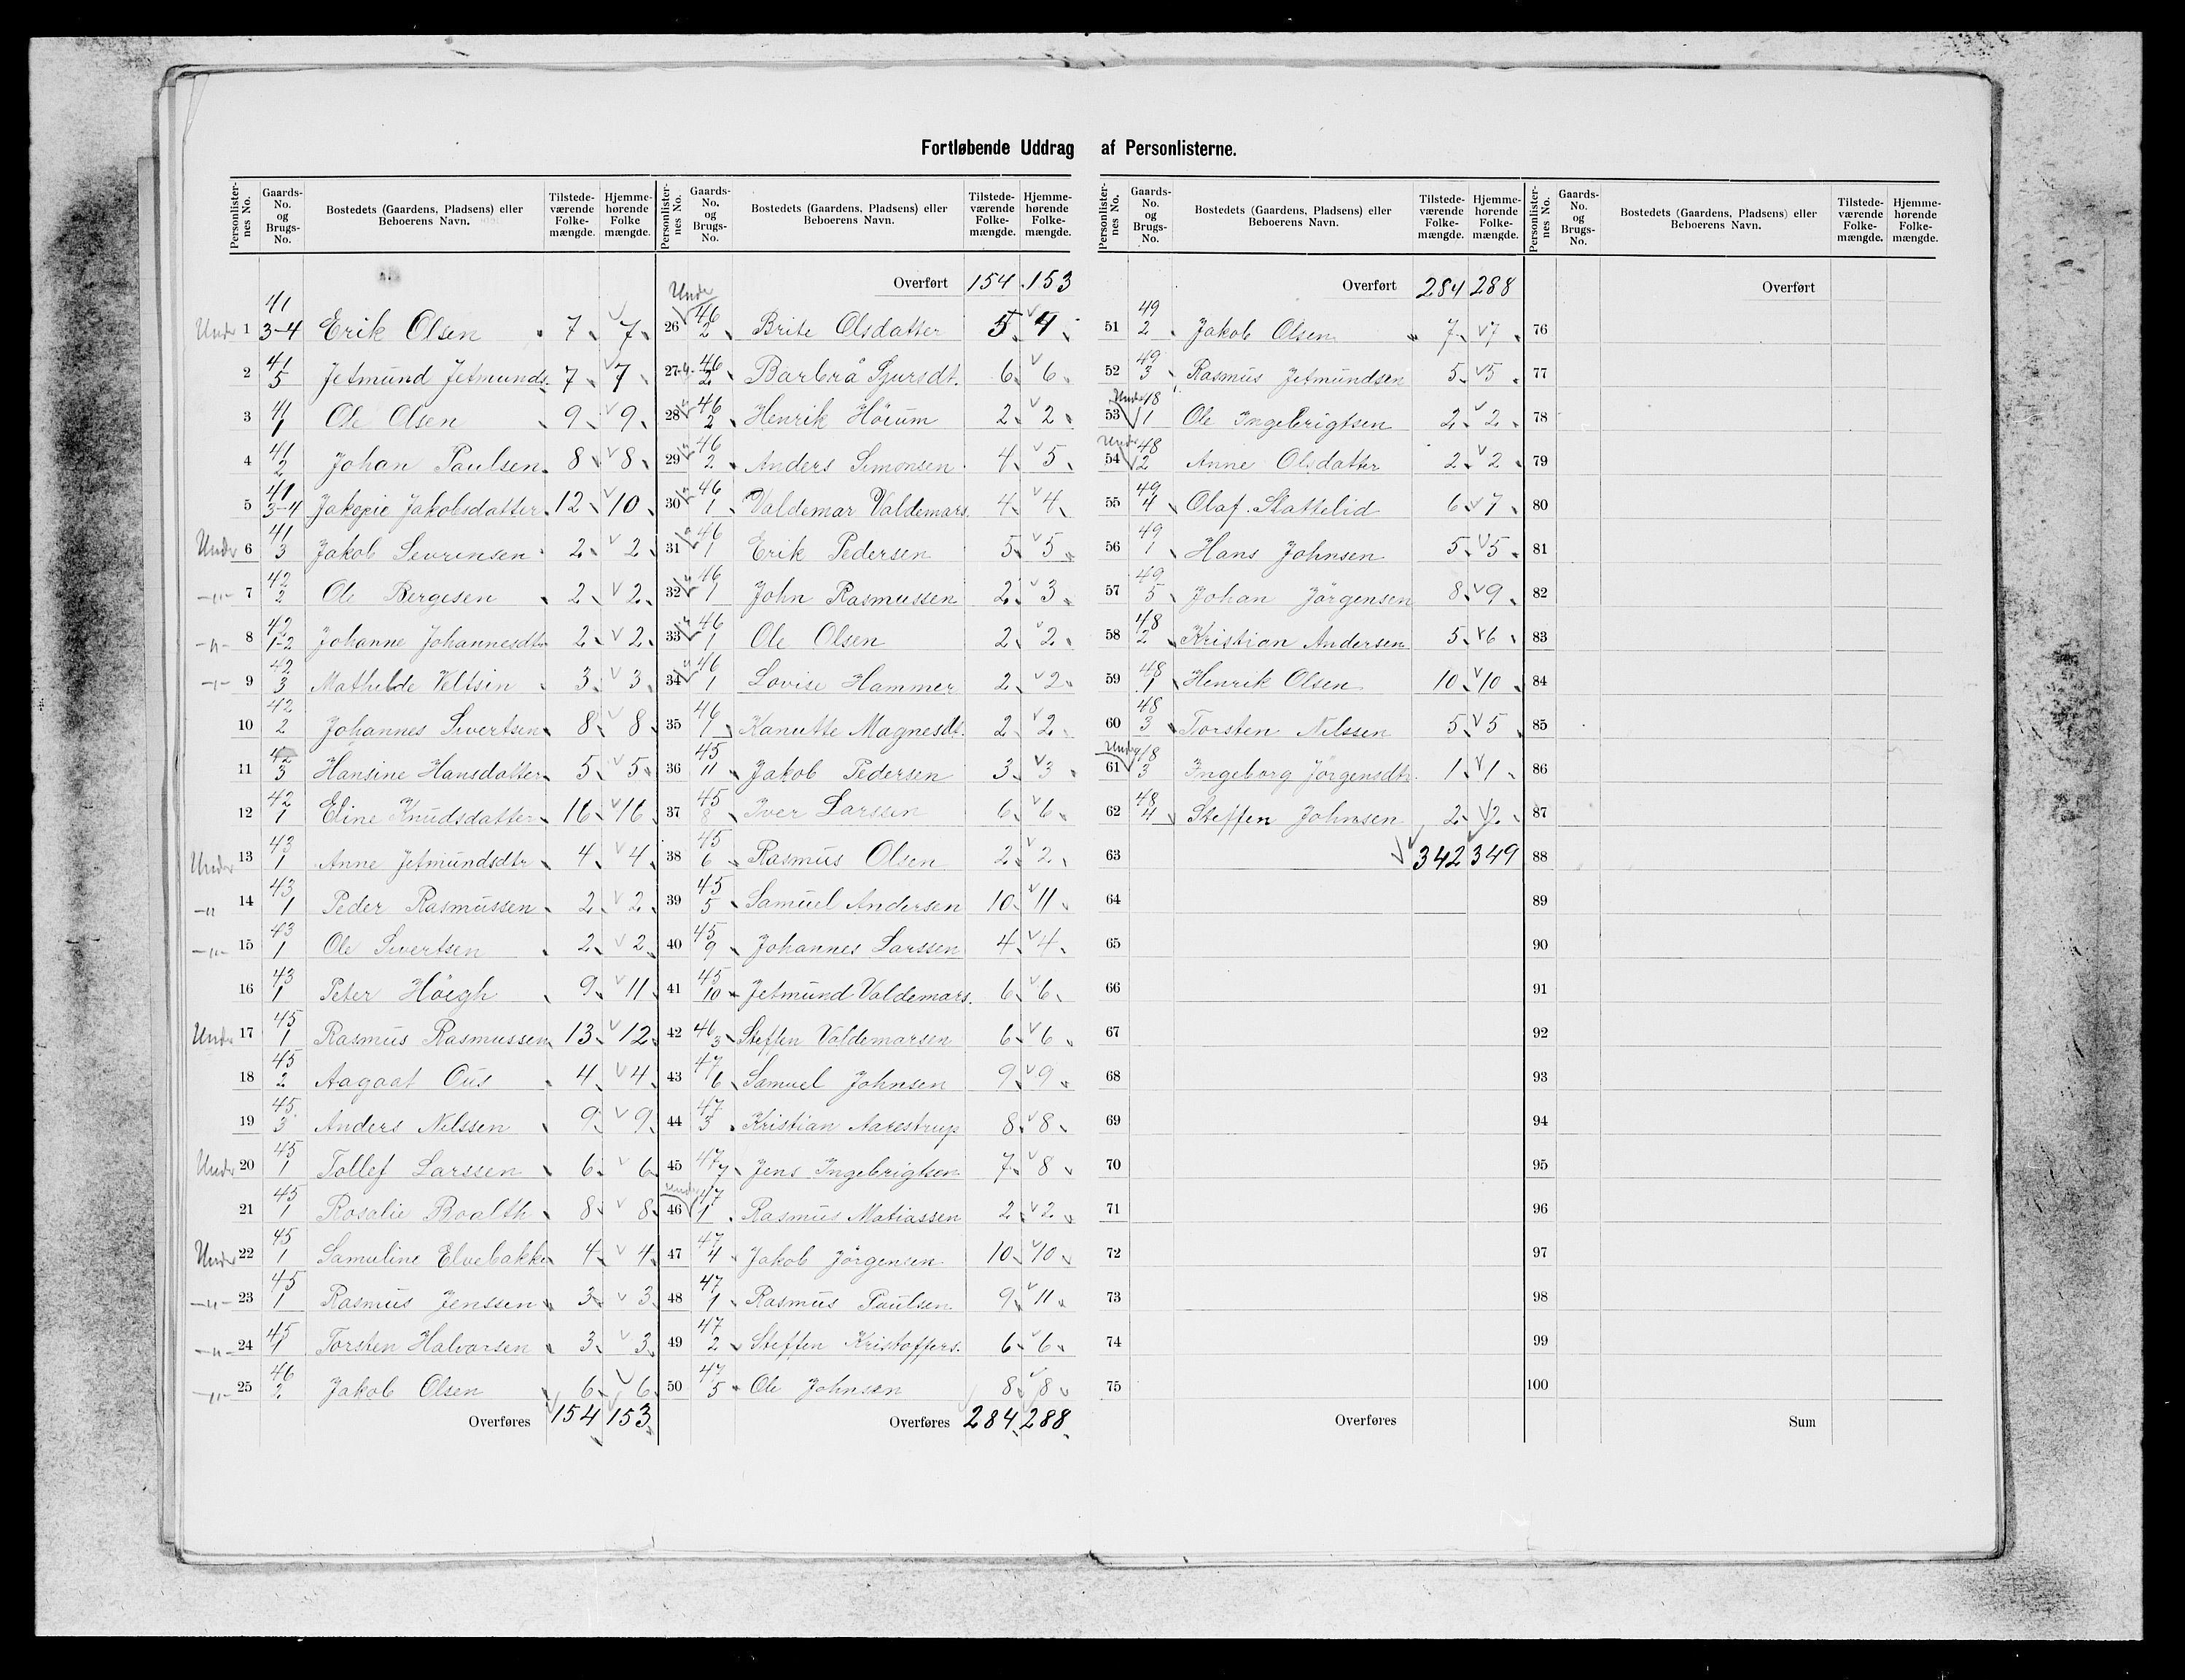 Fortløbende Uddrag af Personlisterne.
Personlisternes No. Gaards-No. og Brugs-No. Bostedets (Gaardens, Pladsens) eller Beboerens Navn. Tilstedeværende Folkemængde. Hjemmehørende Folke mængde.
Under 1 41 3-4 Erik Olsen 7 7
2 41 5 Jetmund Jetmunds. 7 7
3 41 1 Ole Olsen 9 9
4 41 2 Johan Paulsen 8 8
5 41 3-4 Jakopie Jakobsdatter 12 10
Under 6 41 3 Jakob Sevrensen 2 2
-"- 7 42 2 Ole Bergesen 2 2
-"- 8 42 1-2 Johanne Johannesdtr 2 2
-"- 9 42 3 Mathilde Veltsin 3 3
10 42 2 Johannes Sivertsen 8 8
11 42 3 Hansine Hansdatter 5 5
12 42 1 Eline Knudsdatter 16 16
Under 13 43 1 Anne Jetmundsdtr 4 4
-" 14 43 1 Peder Rasmussen 2 2
-"- 15 43 1 Ole Sivertsen 2 2
16 43 1 Peter Höegh 9 11
Under 17 45 1 Rasmus Rasmussen 13 12
18 45 2 Aagaat Ous 4 4
19 45 3 Anders Nilssen 9 9
Under 20 45 1 Tollef Larssen 6 6
21 45 1 Rosalie Boalth 8 8
Under 22 45 1 Samuline Elvebakken 4 4
-"- 23 45 1 Rasmus Jenssen 3 3
-"- 24 45 1 Torsten Halvorsen 3 3
-"- 25 46 2 Jakob Olsen 6 6
Overføres 154 153
Personlisternes No. Gaards-No. og Brugs-No. Bostedets (Gaardens, Pladsens) eller Beboerens Navn. Tilstedeværende Folkemængde. Hjemmehørende Folkemængde.
Overført 154 153
Under 26 46 2 Brite Olsdatter 5 4
27 46 2 Barbra Sjursdt. 6 6
28 46 2 Henrik Höium 2 2
29 46 2 Anders Simonsen 4 5
30 46 1 Valdemar Valdemars. 4 4
31 46 1 Erik Pedersen 5 5
32 46 1 John Rasmussen 2 3
33 46 1 Ole Olsen 2 2
34 46 1 Lovise Hammer 2 2
35 46 1 Kanutte Magnesdt. 2 2
36 45 11 Jakob Pedersen 3 3
37 45 8 Iver Larssen 6 6
38 45 6 Rasmus Olsen 2 2
39 45 5 Samuel Andersen 10 11
40 45 9 Johannes Larssen 4 4
41 45 10 Jetmund Valdemars. 6 6
42 46 3 Steffen Valdemarsen 6 6
43 47 6 Samuel Johnsen 9 9
44 47 3 Kristian Aarestrup 8 8
45 47 7 Jens Ingebrigtsen 7 8
Under 46 47 1 Rasmus Matiassen 2 2
47 47 4 Jakob Jörgensen 10 10
48 47 1 Rasmus Paulsen 9 11
49 47 2 Steffen Kristoffers. 6 6
50 47 5 Ole Johnsen 8 8
Overføres 284 288
Personlisternes No. Gaards-No. og Brugs-No. Bostedets (Gaardens, Pladsens) eller Beboerens Navn. Tilstedeværende Folkemængde. Hjemmehørende Folkemængde.
Overført 284 288
51 49 2 Jakob Olsen 7 7
52 49 3 Rasmus Jetmundsen 5 5
Under 53 48 1 Ole Ingebrigtsen 2 2
Under 54 48 2 Anne Olsdatter 2 2
55 49 4 Olaf Slattelid 6 7
56 49 1 Hans Johnsen 5 5
57 49 5 Johan Jörgensen 8 9
58 48 2 Kristian Andersen 5 6
59 48 1 Henrik Olsen 10 10
60 48 3 Torsten Nilssen 5 5
Under 61 48 3 Ingeborg Jörgensdtr. 1 1
62 48 4 Steffen Johnsen 2 2
63 342 349
64
65
66
67
68
69
70
71
72
73
74
75
Overføres
Personlisternes No. Gaards-No. og Brugs-No. Bostedets (Gaardens, Pladsens) eller Beboerens Navn. Tilstedeværende Folkemængde. Hjemmehørende Folkemængde.
Overført
76
77
78
79
80
81
82
83
84
85
86
87
88
89
90
91
92
93
94
95
96
97
98
99
100
Sum